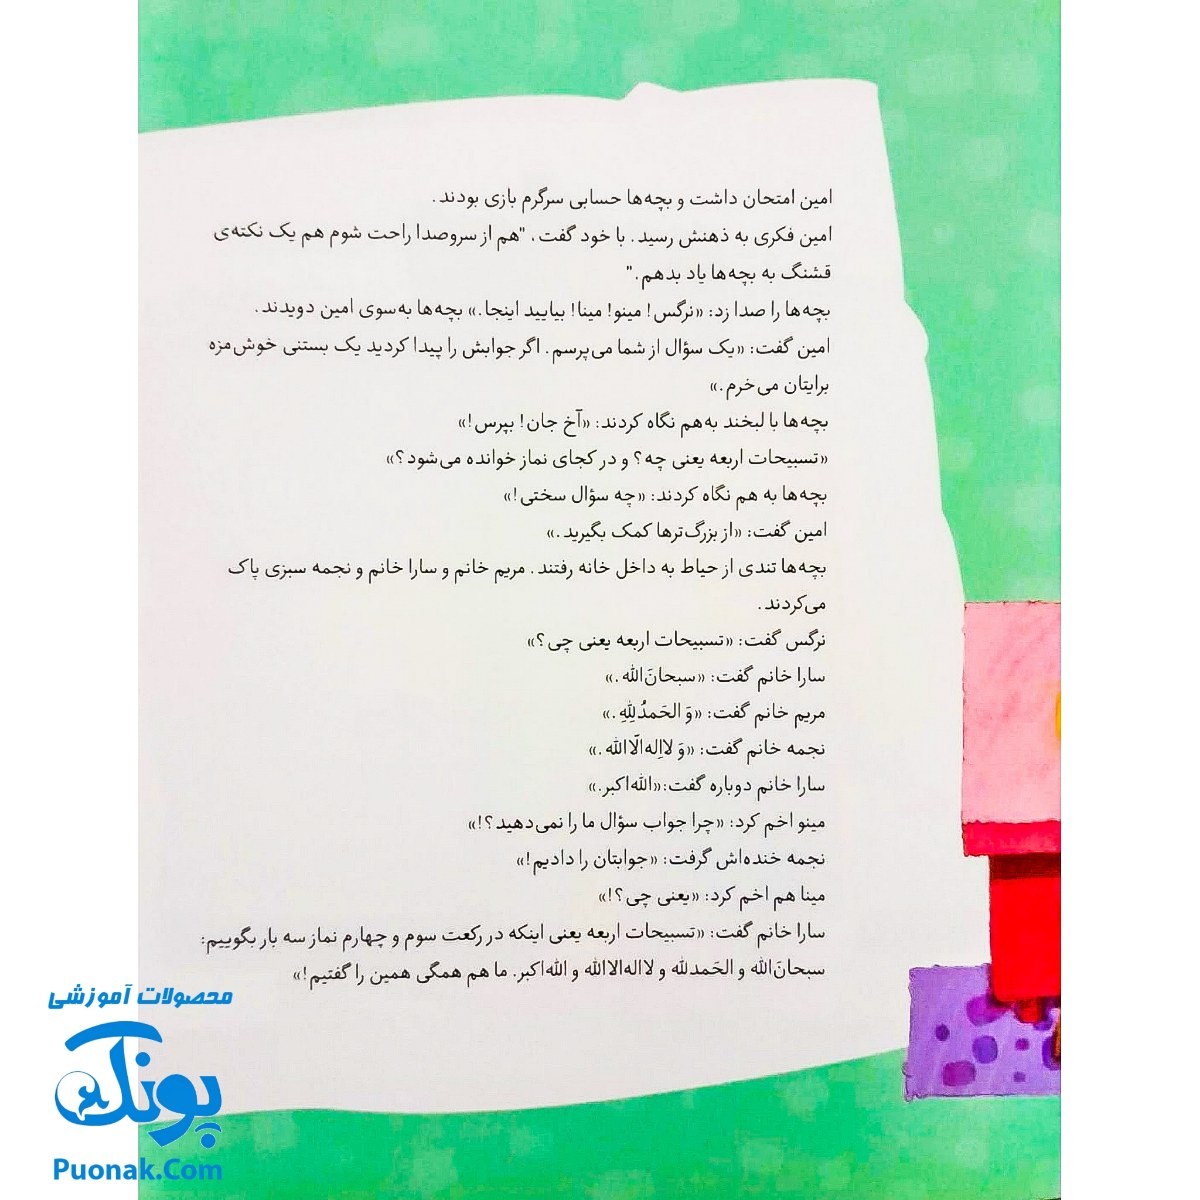 امین امتحان داشت و بچه‌ها حسابی سرگرم بازی بودند.
امین فکری به ذهنش رسید. با خود گفت، "هم از سروصدا راحت شوم هم یک نکته‌ی
قشنگ به بچه‌ها یاد بدهم."
بچه‌ها را صدا زد: «نرگس! مینو! مینا! بیایید اینجا.» بچه‌ها به‌سوی امین دویدند.
امین گفت: «یک سؤال از شما می‌پرسم. اگر جوابش را پیدا کردید یک بستنی خوش‌مزه
برایتان می‌خرم.»
بچه‌ها با لبخند به‌هم نگاه کردند: «آخ جان! بپرس!»
«تسبیحات اربعه یعنی چه؟ و در کجای نماز خوانده می‌شود؟»
بچه‌ها به هم نگاه کردند: «چه سؤال سختی!»
امین گفت: «از بزرگ‌ترها کمک بگیرید.»
بچه‌ها تندی از حیاط به داخل خانه رفتند. مریم خانم و سارا خانم و نجمه سبزی پاک
می‌کردند.
نرگس گفت: «تسبیحات اربعه یعنی چی؟»
سارا خانم گفت: «سبحانَ‌الله.»
مریم خانم گفت: «وَ الحَمدُلِلّهِ.»
نجمه خانم گفت: «وَ لااِله‌الّاالله.»
سارا خانم دوباره گفت:«الله‌اکبر.»
مینو اخم کرد: «چرا جواب سؤال ما را نمی‌دهید؟!»
نجمه خنده‌اش گرفت: «جوابتان را دادیم!»
مینا هم اخم کرد: «یعنی چی؟!»
سارا خانم گفت: «تسبیحات اربعه یعنی اینکه در رکعت سوم و چهارم نماز سه بار بگوییم:
سبحانَ‌الله و الحَمدلله و لااله‌الاالله و الله‌اکبر. ما هم همگی همین را گفتیم!»
محصولات آموزشی
پونک
Puonak.Com